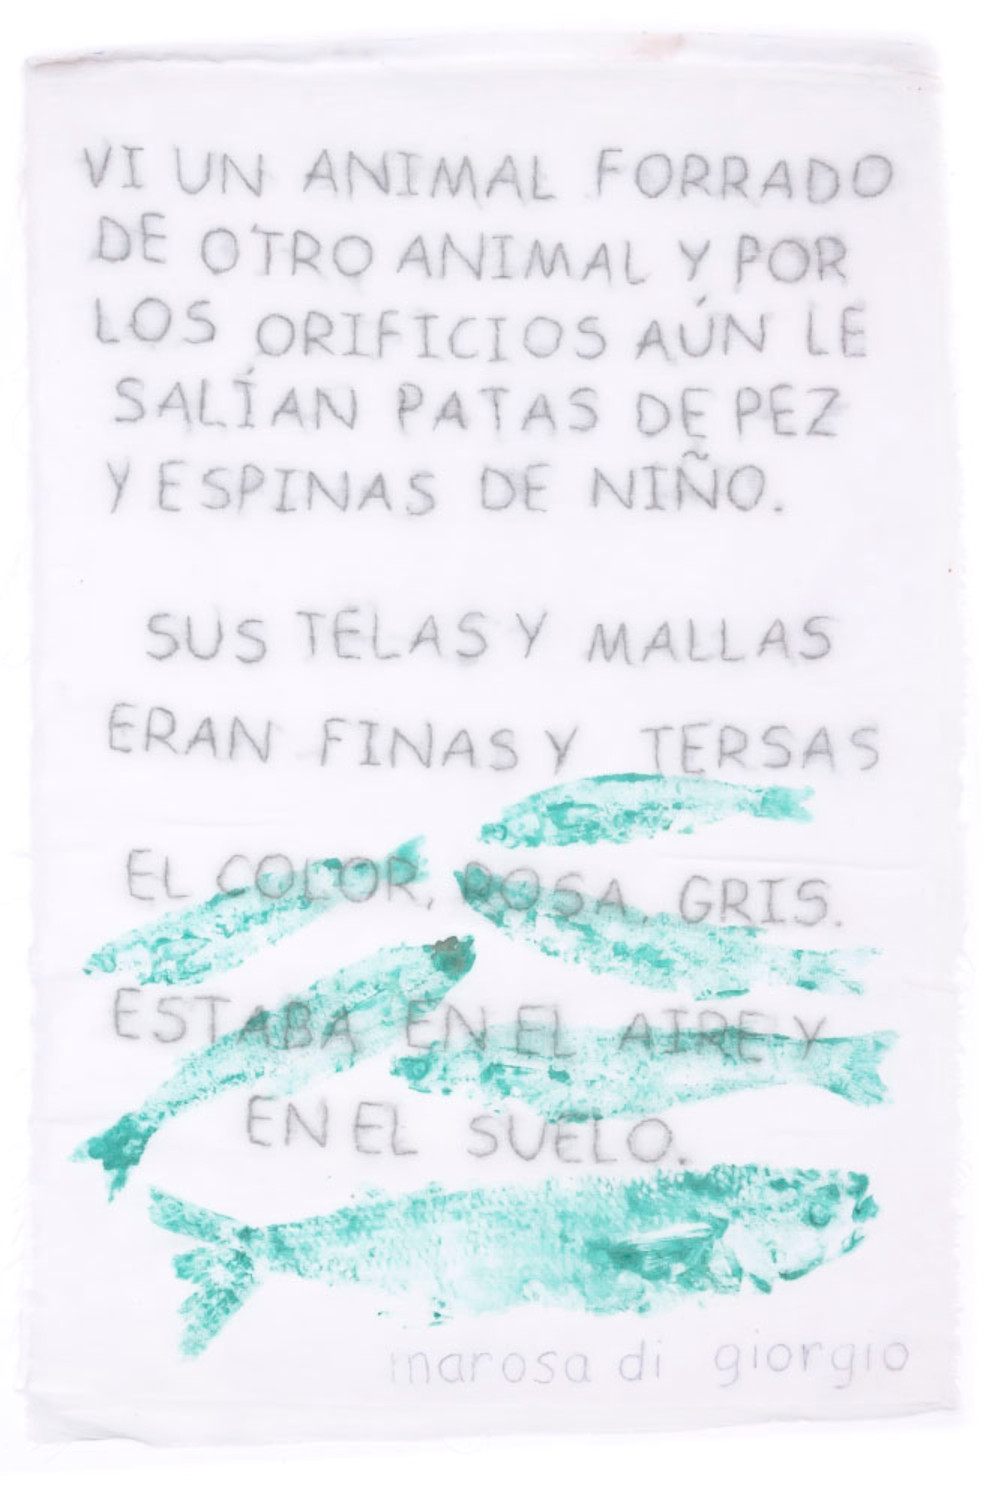 VI UN ANIMAL FORRADO
DE OTRO ANIMAL Y POR
LOS ORIFICIOS AÚN LE
SALÍAN PATAS DE PEZ
Y ESPINAS DE NIÑO.
SUS TELAS Y MALLAS
ERAN FINAS Y TERSAS
EL COLOR, ROSA, GRIS.
ESTABA EN EL AIRE Y
EN EL SUELO.
marosa di giorgio